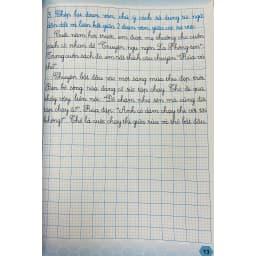 3. Chép lại đoạn văn, chú ý cách sử dụng từ ngữ
dẫn dắt và liên kết giữa 2 đoạn văn, giữa các sự việc.
Cuối năm học trước, em được mẹ thưởng cho cuốn
sách có nhan đề "Truyện ngụ ngôn La Phông-ten".
Trong cuốn sách đó, em rất thích câu chuyện "Rùa và
thỏ".
Chuyện bắt đầu vào một sáng mùa thu đẹp trời.
Bên bờ sông, rùa đang cố sức tập chạy. Thỏ đi qua
thấy vậy liền nói: "Đồ chậm như sên mà cũng đòi
tập chạy à!". Rùa đáp: "Anh có dám chạy thi với tôi
không?". Thế là cuộc chạy thi giữa rùa và thỏ bắt đầu.
13